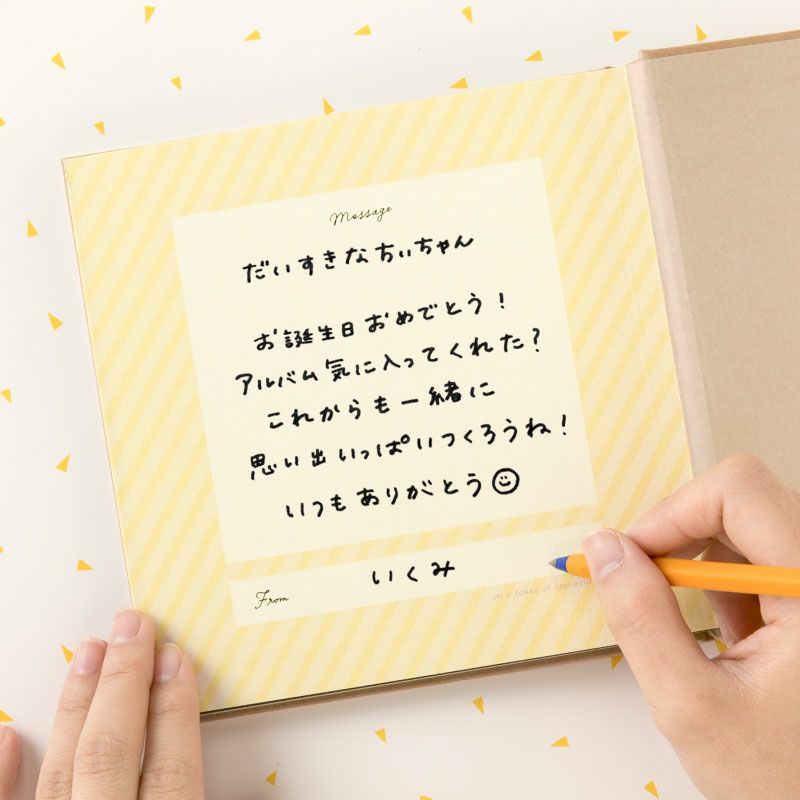 Message
だいすきなちぃちゃん
お誕生日おめでとう!
アルバム気に入ってくれた?
これからも一緒に
思い出いっぱいつくろうね!
いつもありがとう
いくみ
From
As a token of